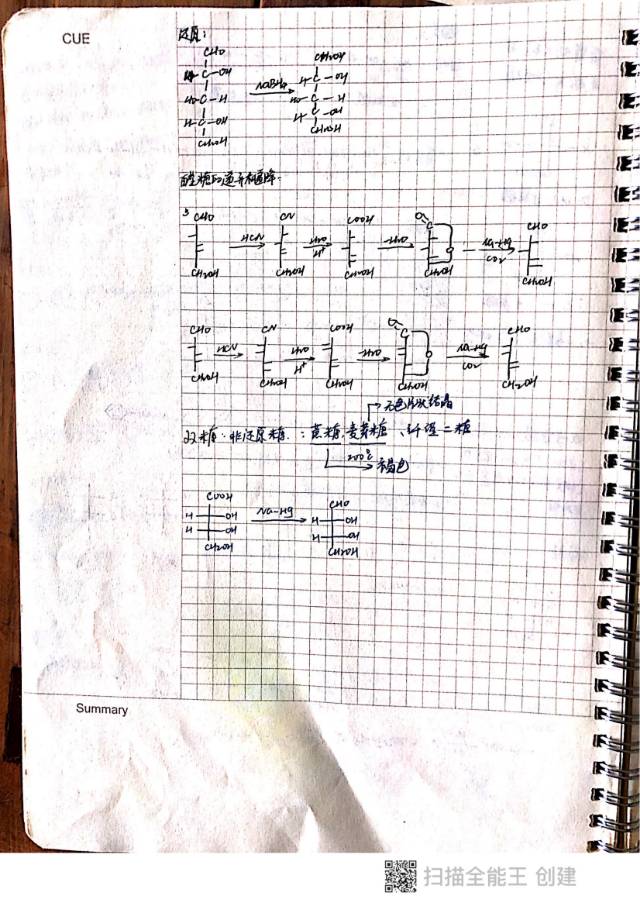 CUE
还原:
CHO CH₂OH
H-C-OH NaBH₄ H-C-OH
HO-C-H HO-C-H
H-C-OH H-C-OH
CH₂OH CH₂OH
醛糖的递升和递降.
CHO HCN CN H₂O H⁺ COOH -H₂O O C O Na-Hg CO₂ CHO
CH₂OH CH₂OH CH₂OH CH₂OH CH₂OH
CHO HCN CN H₂O H⁺ COOH -H₂O O C O Na-Hg CO₂ CHO
CH₂OH CH₂OH CH₂OH CH₂OH CH₂OH
→无色片状结晶
双糖:非还原糖:蔗糖、麦芽糖、纤维二糖
200℃ 褐色
COOH CHO
H OH Na-Hg H OH
H OH H OH
CH₂OH CH₂OH
Summary
扫描全能王 创建